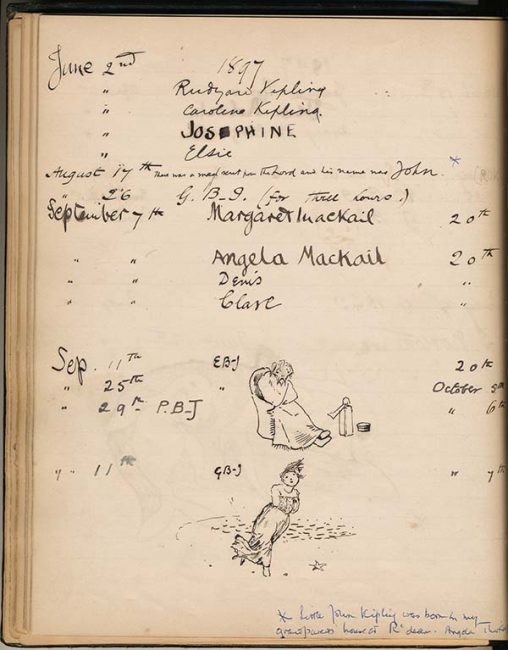 June 2nd 1897
" Rudyard Kipling
" Caroline Kipling.
" JOSEPHINE
" Elsie
August 17th There was a man sent from the Lord and his name was John. *
" 26 G. B-J. (for three hours.)
September 7th Margaret Mackail 20th
" " Angela Mackail 20th
" " Denis "
" " Clare "
Sep. 11th EB-J 20th
" 25th " October 5th
" 29th P.B-J " 6th
" " 11th GB-J " 7th
* Little John Kipling was born in my
grandparents house at R'dean. Angela